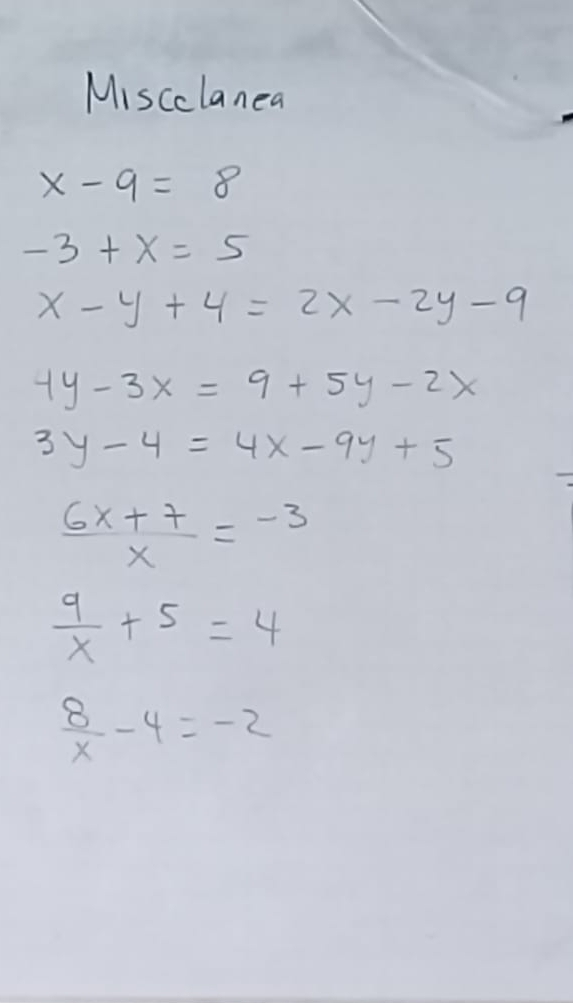 Miscelanea
x - 9 = 8
-3 + x = 5
x - y + 4 = 2x - 2y - 9
4y - 3x = 9 + 5y - 2x
3y - 4 = 4x - 9y + 5
(6x + 7)/x = -3
9/x + 5 = 4
8/x - 4 = -2